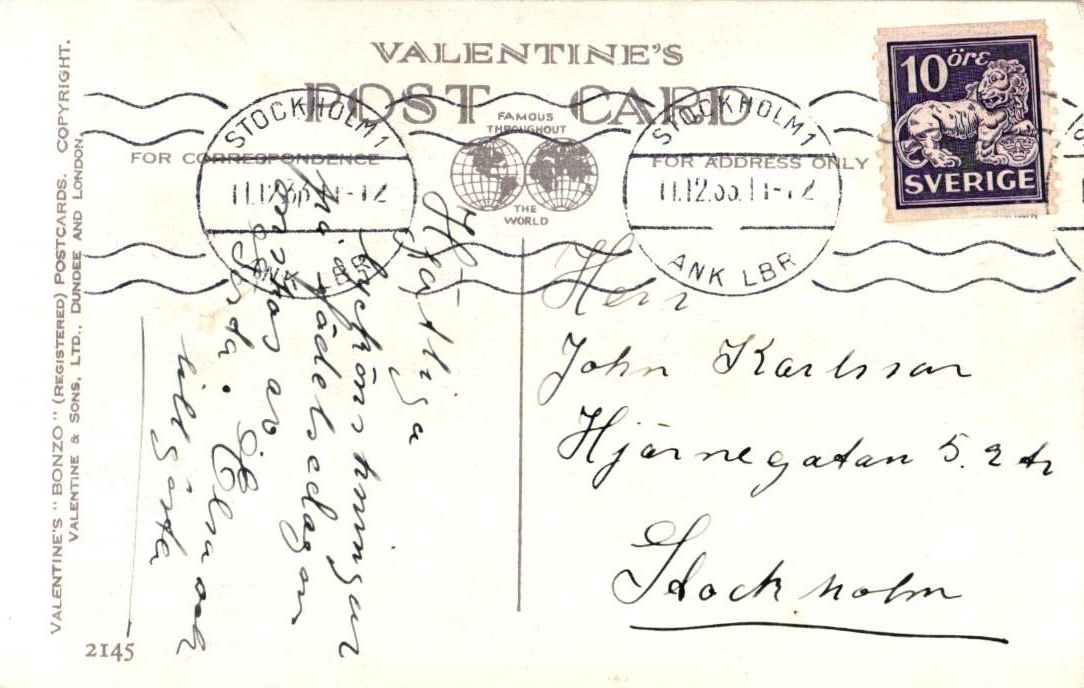 VALENTINE'S
POST CARD
FAMOUS
THROUGHOUT
THE
WORLD
FOR CORRESPONDENCE
FOR ADDRESS ONLY
STOCKHOLM 1
11.12.33. 11-12
ANK LBR
STOCKHOLM 1
11.12.33. 11-12
ANK LBR
10 öre
SVERIGE
VALENTINE'S "BONZO" (REGISTERED) POSTCARDS. COPYRIGHT.
VALENTINE & SONS, LTD., DUNDEE AND LONDON.
2145
Hjärtliga
lyckönskningar
på födelsedagen
önskas av
Gerda. Elsa och
lill gösta
Herr
John Karlsson
Hjärnegatan 5. 2 tr
Stockholm